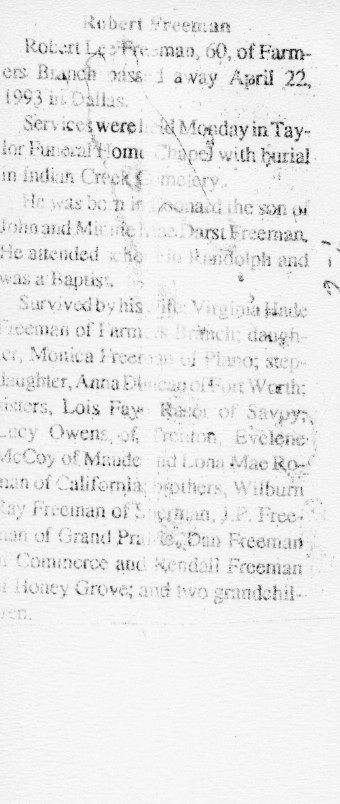 Robert Freeman
Robert Lee Freeman, 60, of Farm-
ers Branch passed away April 22,
1993 in Dallas.
Services were held Monday in Tay-
lor Funeral Home Chapel with burial
in Indian Creek Cemetery.
He was born in Leonard the son of
John and Minnie Mae Darst Freeman.
He attended school in Randolph and
was a Baptist.
Survived by his wife Virginia Hade
Freeman of Farmers Branch; daugh-
ter, Monica Freeman of Plano; step-
daughter, Anna Duncan of Fort Worth;
sisters, Lois Faye Razor of Savoy,
Lucy Owens of Trenton, Evelene
McCoy of Maude and Lona Mae Ro-
man of California; brothers, Wilburn
Ray Freeman of Sherman, J.P. Free-
man of Grand Prairie, Dan Freeman
of Commerce and Kendall Freeman
of Honey Grove; and two grandchil-
dren.